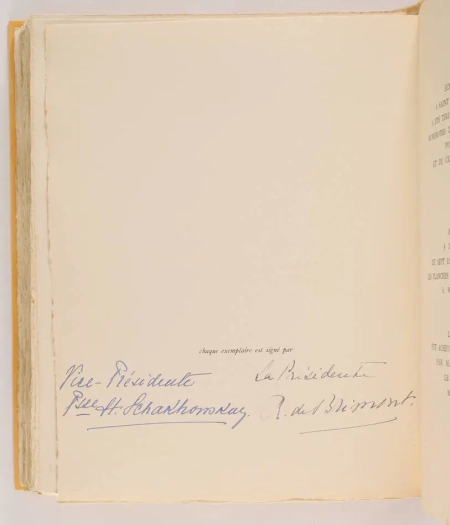 chaque exemplaire est signé par
Vice-Présidente
La Présidente
Psse H. Schakhowskay.
R. de Brimont.